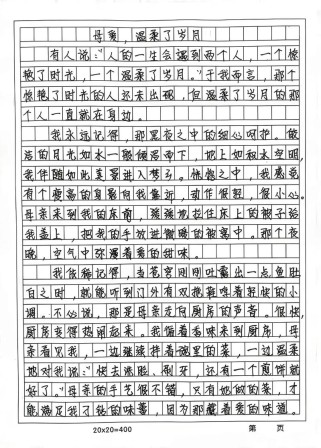 母爱，温柔了岁月
有人说：“人的一生会遇到两个人，一个惊
艳了时光，一个温柔了岁月。”于我而言，那个
惊艳了时光的人还未出现，但温柔了岁月的那
个人一直就在身边。
我永远记得，那黑夜之中的细心呵护。皎
洁的月光如水一般倾泻而下，地上如积水空明，
我伴随如此美景进入梦乡。恍惚之中，我感觉
有个瘦高的身影向我靠近，动作很轻，很小心。
母亲来到我的床前，缓缓地拉住床上的被子给
我盖上，把我的手放进微暖的被窝中。那个夜
晚，空气中弥漫着爱的甜味。
我依稀记得，当苍穹刚刚吐露出一点鱼肚
白之时，就能听到门外有双拖鞋唯着轻快的小
调。不必说，那是母亲走向厨房的声音。很快，
厨房变得热闹起来。我循着香味来到厨房，母
亲看见我，一边继续拌着碗里的菜，一边温柔
地对我说：“快去洗脸、刷牙，还有一个煎饼就
好了。”母亲的手艺很不错，只有她做的菜，才
能满足我才能的味蕾，因为那藏着爱的味道。
20×20=400 第 页